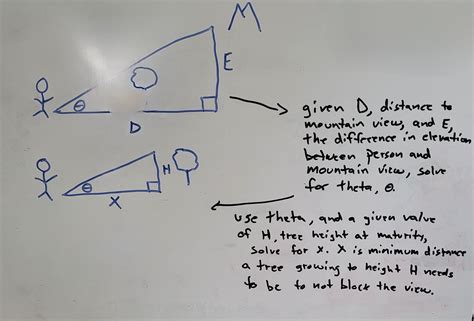 M
E
θ
D
given D, distance to
mountain view, and E,
the difference in elevation
between person and
mountain view, solve
for theta, θ.
H
θ
X
use theta, and a given value
of H, tree height at maturity,
solve for x. X is minimum distance
a tree growing to height H needs
to be to not block the view.